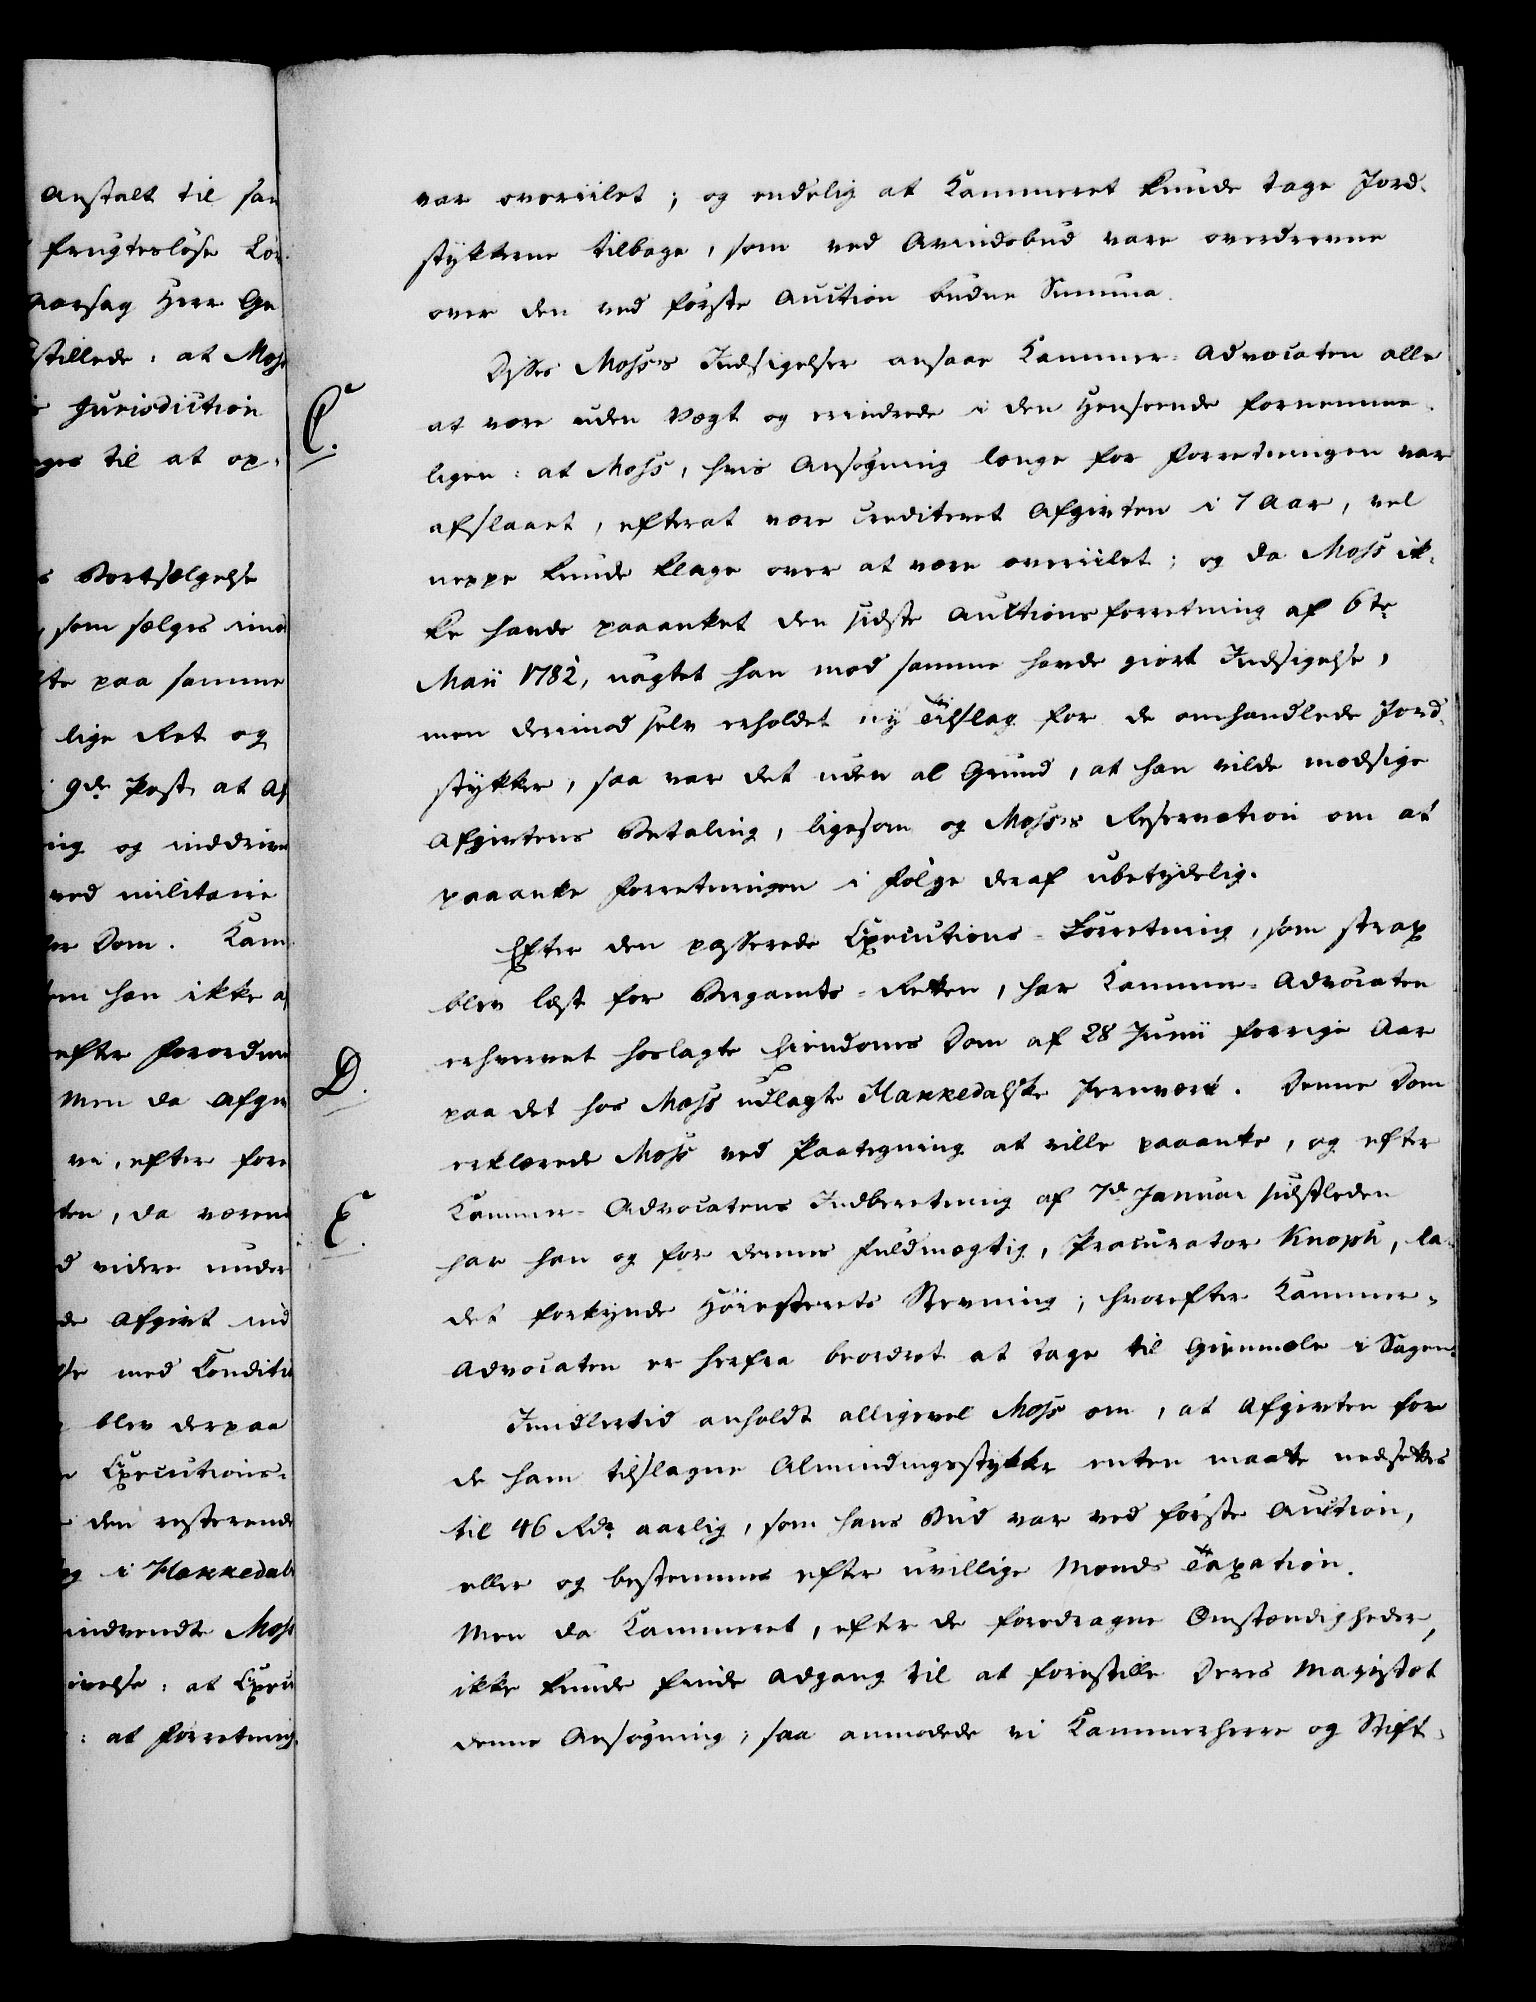 Anstalt til san
frugtesløse Lov
Aarsag Herr Ge
stillede: at Moss
Jurisdiction
ages til at op-
s Bortsælgelse
, som sælges imod
lte paa samme
lige Ret og
9de Post, at Af
ing og inddrive
ved militaire
der Dom. Kam
han ikke
efter Forordnin
Men da Afgiv
vi, efter fore
ten, da værend
d videre under
de Afgivt ind
med Conditi
blev derpaa
Executions-
den resterende
i Hakkedals
indvendte Moss
ivelse: at Execu
: at Forretning
var overiilet; og endelig at Kammeret kunde tage Jord-
stykkerne tilbage, som ved Avindsbud vare overdrevne
over den ved første Auction budne Summa.
C.
Disse Moss's Indsigelser ansaae Kammer-Advocaten alle
at være uden Vægt og erindrede i den Henseende fornemme-
ligen: at Moss, hvis Ansøgning længe for Forretningen var
afslaaet, efterat være crediteret Afgivten i 7 Aar, vel
neppe kunde klage over at være overiilet; og da Moss ik-
ke havde paaanket den sidste Auctionsforretning af 6te
Maii 1782, uagtet han mod samme havde giort Indsigelse,
men derimod selv erholdet ny Tilslag for de omhandlede Jord-
stykker, saa var det uden al Grund, at han vilde modsige
Afgivtens Betaling, ligesom og Moss's Reservation om at
paaanke Forretningen i Følge deraf ubetydelig.
Efter den passerede Executions-Forretning, som strax
blev læst for Bergamts-Retten, har Kammer-Advocaten
D.
erhvervet hoslagte Eiendoms Dom af 28 Junii forrige Aar
paa det hos Moss udlagte Hakkedalske Jernværk. Denne Dom
erklærede Moss ved Paategning at ville paaanke, og efter
E.
Kammer-Advocatens Indberetning af 7de Januar sidstleden
har han og for dennes Fuldmægtig, Procurator Knoph, la-
det forkynde Høiesterets Stevning; hvorefter Kammer-
Advocaten er herfra beordret at tage til Gienmæle i Sagen.
Imidlertid anholdt alligevel Moss om, at Afgivten for
de ham tilslagne Almindingsstykker enten maatte nedsettes
til 46 Rdr aarlig, som hans Bud var ved første Auction,
eller og bestemmes efter uvillige Mænds Taxation.
Men da Kammeret, efter de foredragne Omstændigheder,
ikke kunde finde Adgang til at forestille Deres Majestæt
denne Ansøgning; saa anmodede vi Kammerherre og Stift-